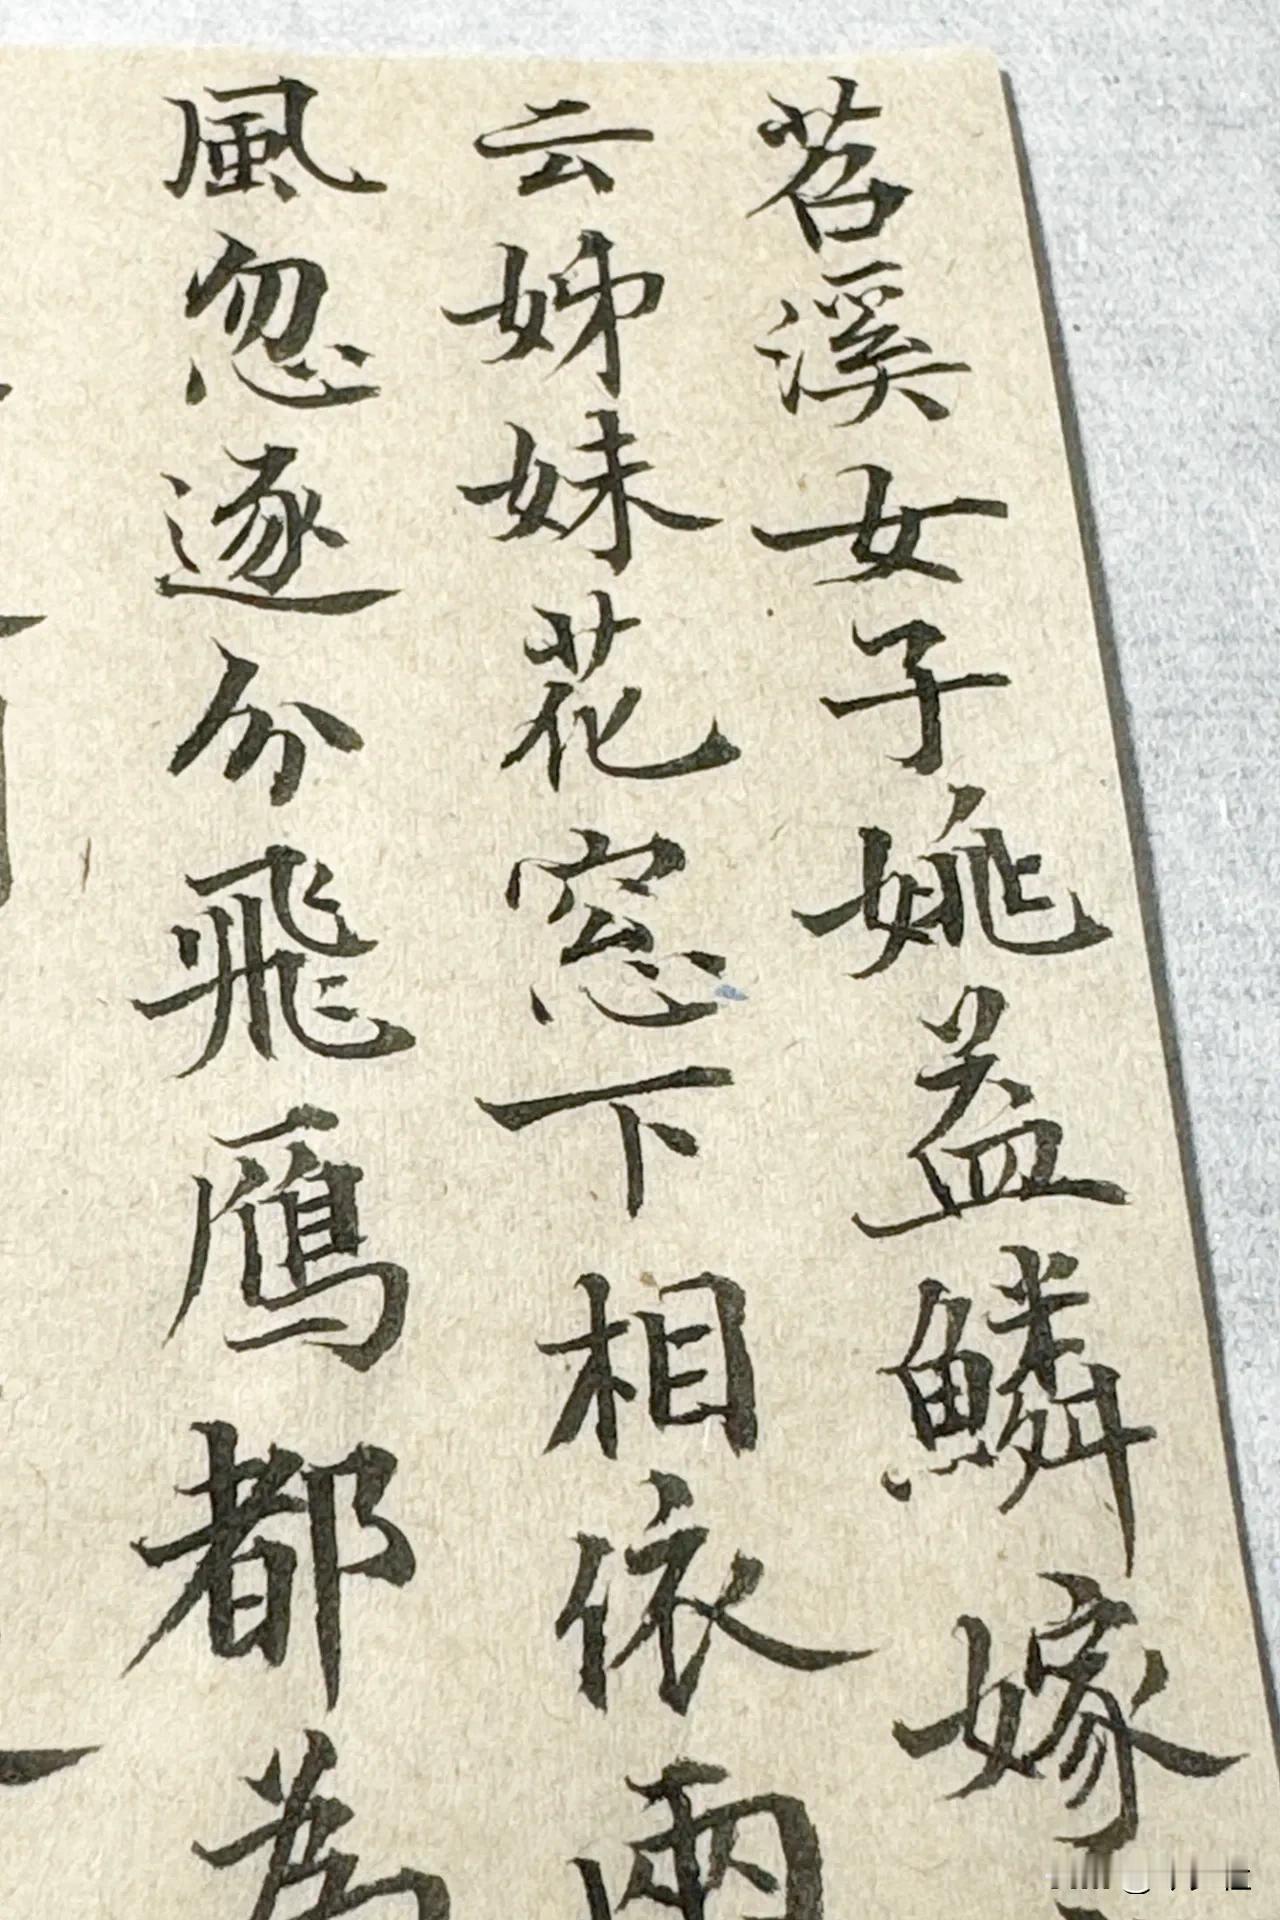 苕溪女子姚益鱗嫁
云姊妹花窓下相依兩
風忽逐分飛鴈都為